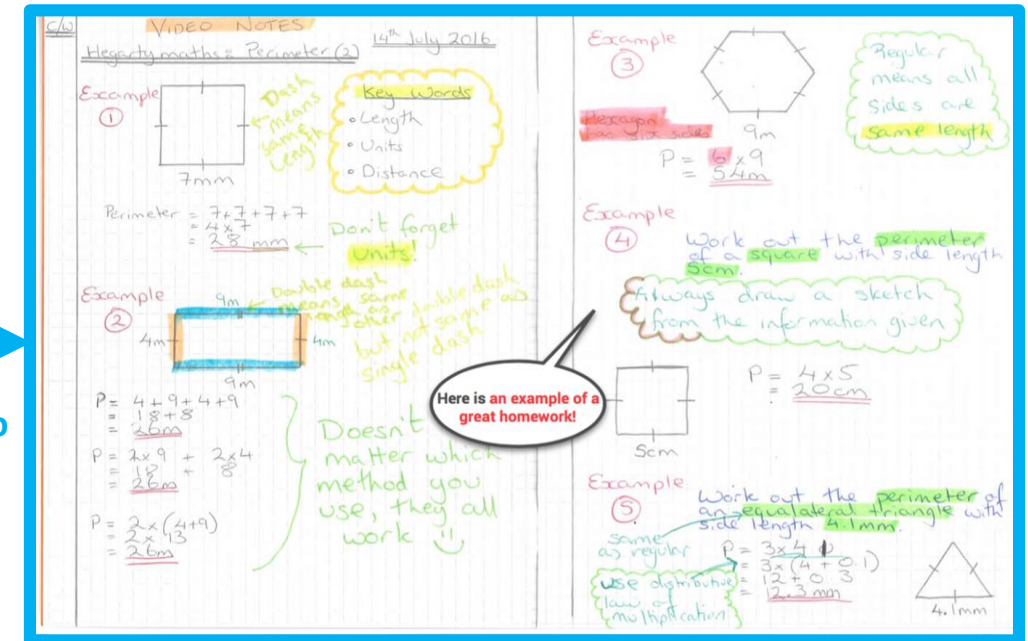 C/W
VIDEO NOTES
Hegartymaths: Perimeter (2)
14th July 2016
Example
1
Dash
means
same
length
7mm
Key Words
• Length
• Units
• Distance
Perimeter = 7+7+7+7
= 4x7
= 28 mm
Don't forget
Units!
Example
2
9m
4m
4m
9m
Double dash
means same
as
other double dash
but not same as
single dash
P = 4+9+4+9
= 18+8
= 26m
P = 2x9 + 2x4
= 18 + 8
= 26m
P = 2x(4+9)
= 2x13
= 26m
Doesn't
matter which
method you
use, they all
work
Example
3
Hexagon
has six sides
9m
P = 6x9
= 54m
Regular
means all
sides are
same length
Example
4
Work out the perimeter
of a square with side length
5cm.
Always draw a sketch
from the information given
Here is an example of a
great homework!
5cm
P = 4x5
= 20cm
Example
5
Work out the perimeter of
an equalateral triangle with
side length 4.1mm.
same
as regular
use distributive
law of
multiplication
P = 3x4.1
= 3x(4+0.1)
= 12+0.3
= 12.3mm
4.1mm